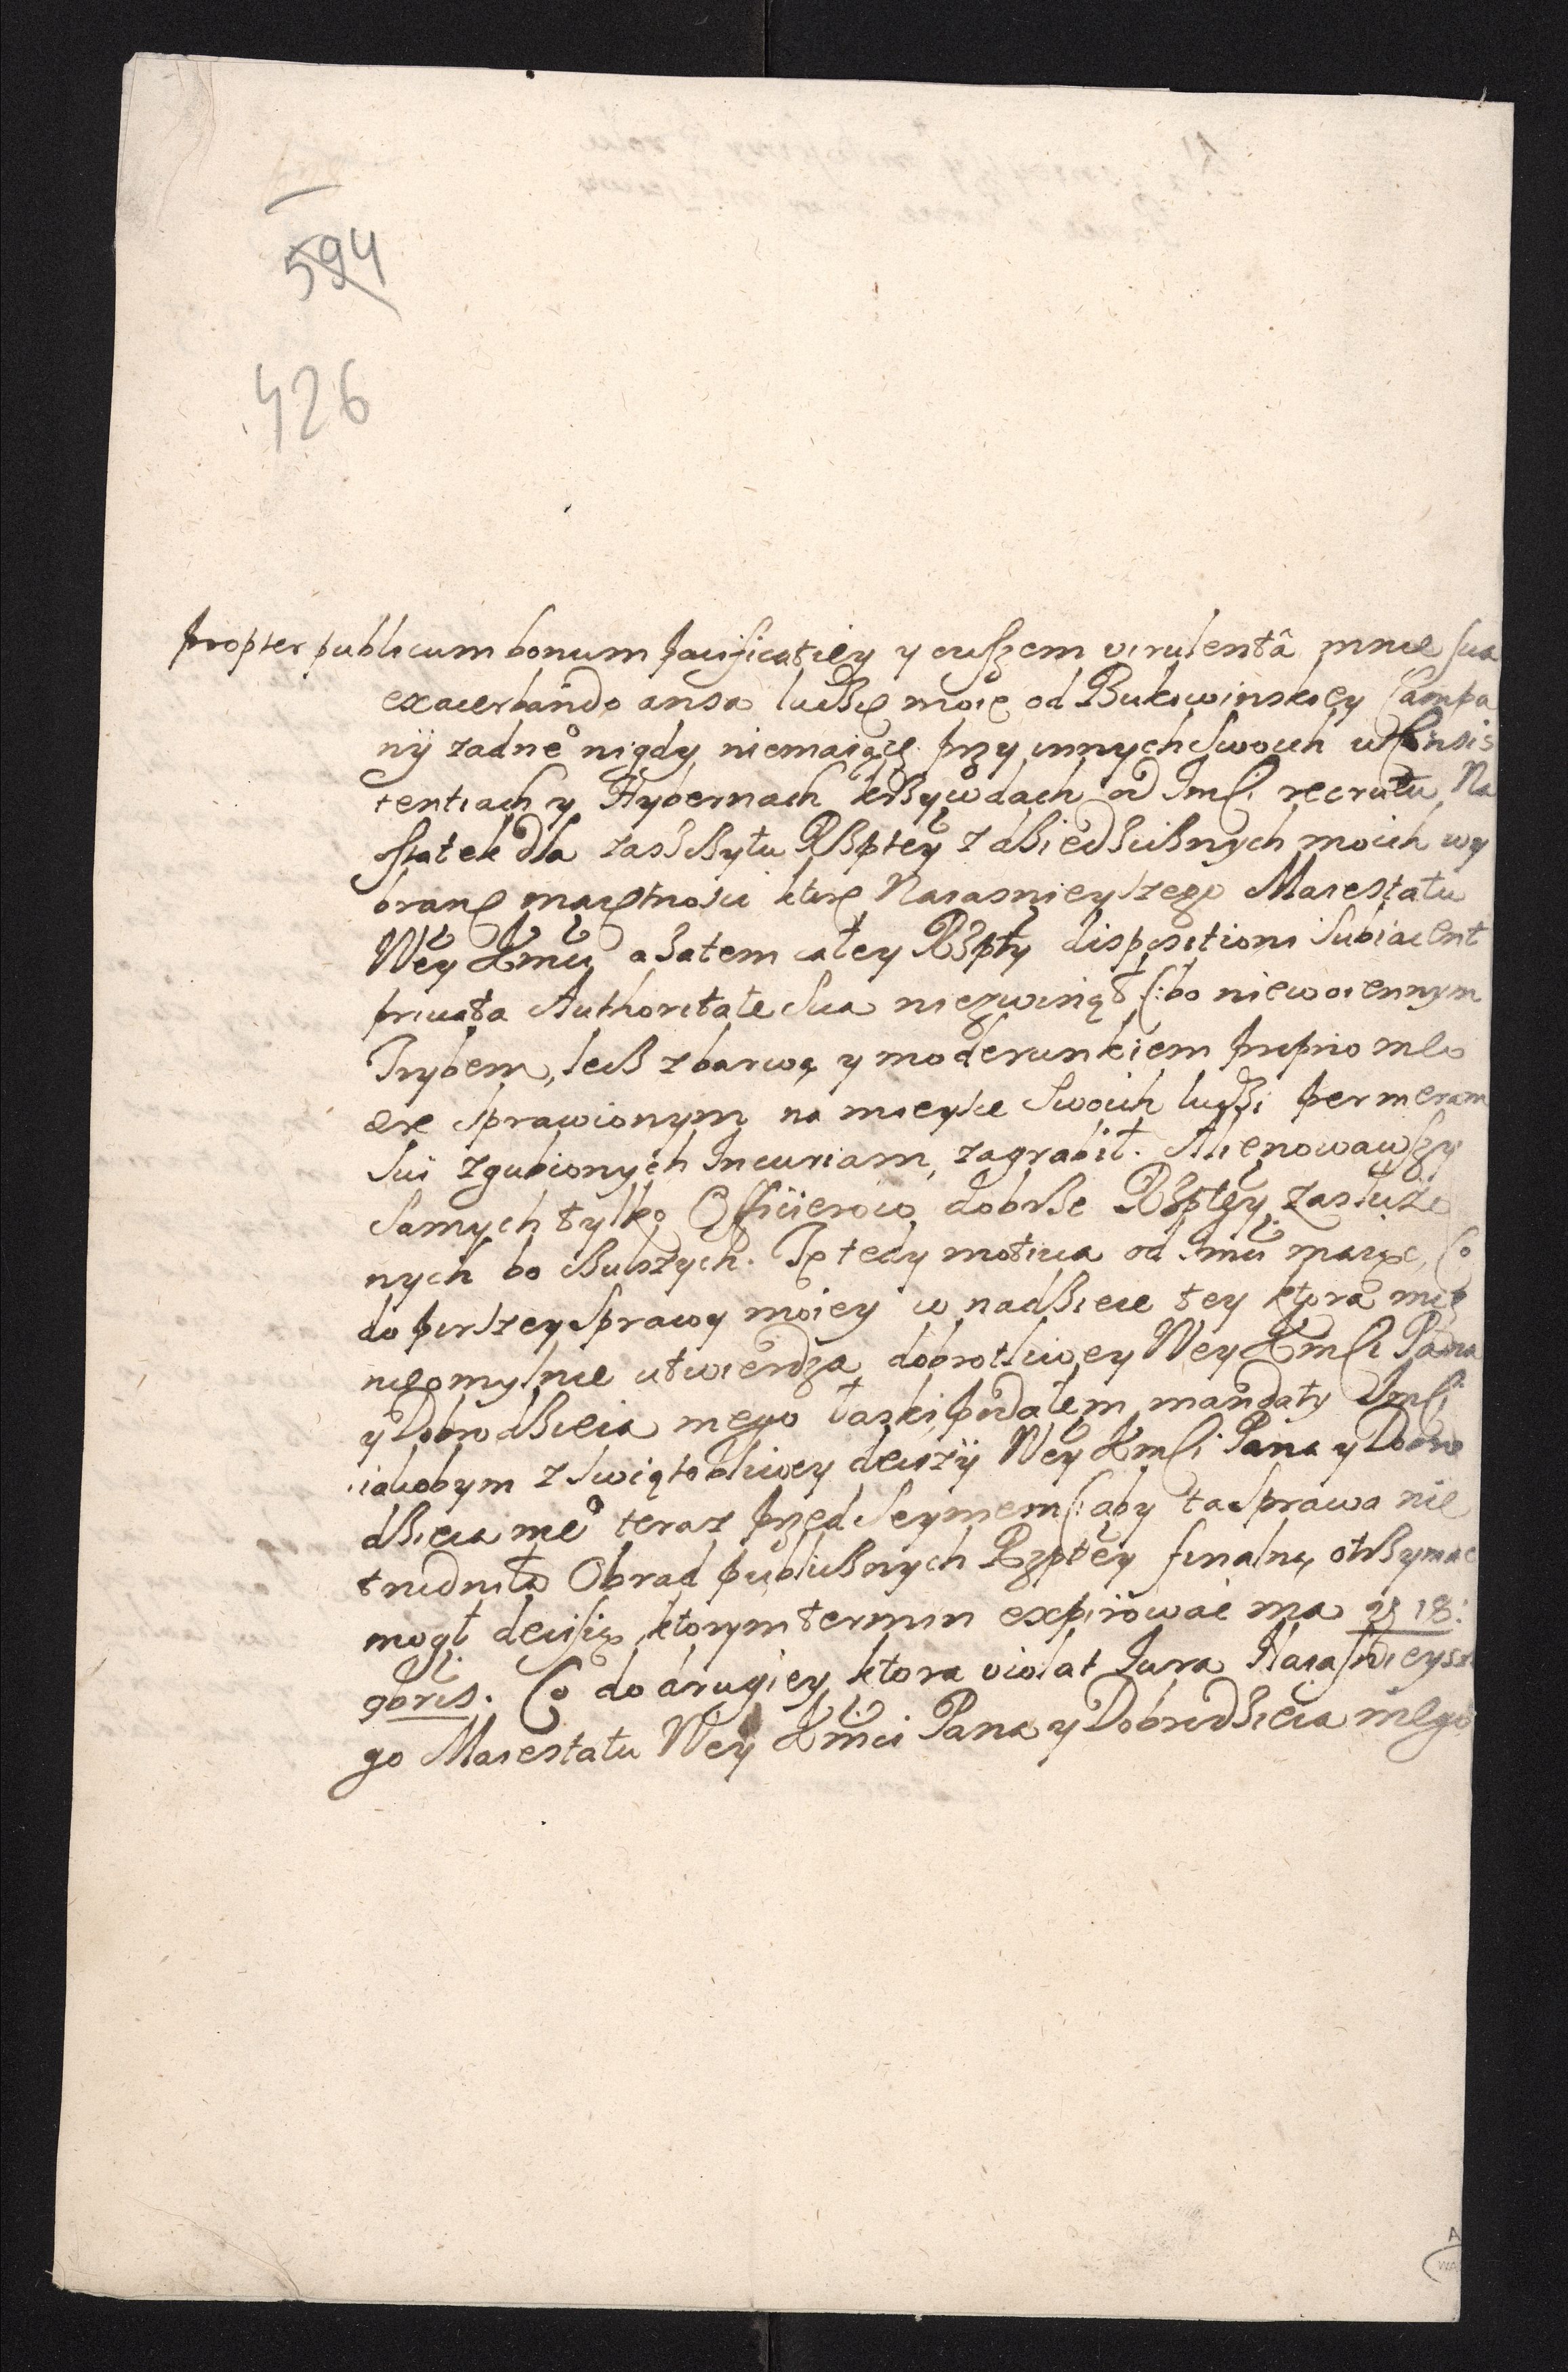 594
426
propter publicum bonum pacificatiey y owszem virulentâ mnie sua
exacerbando ansa ludzie moie od Bukowinskiey Campa
nÿ zadne° nigdy niemaiące przy innych Swoich w Consis
tentiach y Hybernach krzywdach od Jmsci recrutu Na
ostatek dla zaszczytu Rzptey z dziedzicznych moich wy
brane maiętnosci ktore Naiasnieyszego Maiestatu
Wey Kmci a zatem całey Rzpty dispositioni Subiacent
privata Authoritate Sua niezwiniąt (:bo niewoiennym
Trybem, lecz z barwą y moderunkiem proprio meo
ære sprawionym na mieysce Swoich ludzi per meram
Sui zgubionych Incuriam, zagrabił. Alienowawszy
Samych tylko Officierow dobrze Rzptey zasłużo
nych bo czulszych. Te tedy motiva od Jmci maiąc, Co
do pirszey Sprawy moiey w nadziei tey ktora mię
nieomylnie utwierdza dobrotliwey Wey Kmsci Pana
y Dobrodzieia mego łaski podałem mandaty Jmsci
iakobym z Swiątobliwey decizÿ Wey Kmsci Pana y Dobro
dzieia me° teraz przed Seymem (:aby ta Sprawa nie
trudniła Obrad publicznych Rzptey finalną otrzymac
mogł decisią, ktorym termin expirowac ma 18:
9bris. Co do drugiey ktora violat Jura Naiasnieysze
go Maiestatu Wey Kmci Pana y Dobrodzieia mego